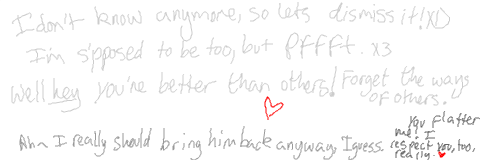 I don't know anymore, so lets dismiss it! XD
I'm s'pposed to be too, but pffft. x3
Well hey you're better than others! Forget the ways
of others.
Ah~ I really should bring him back anyway, I guess.
You flatter
me! I
respect you, too,
really.